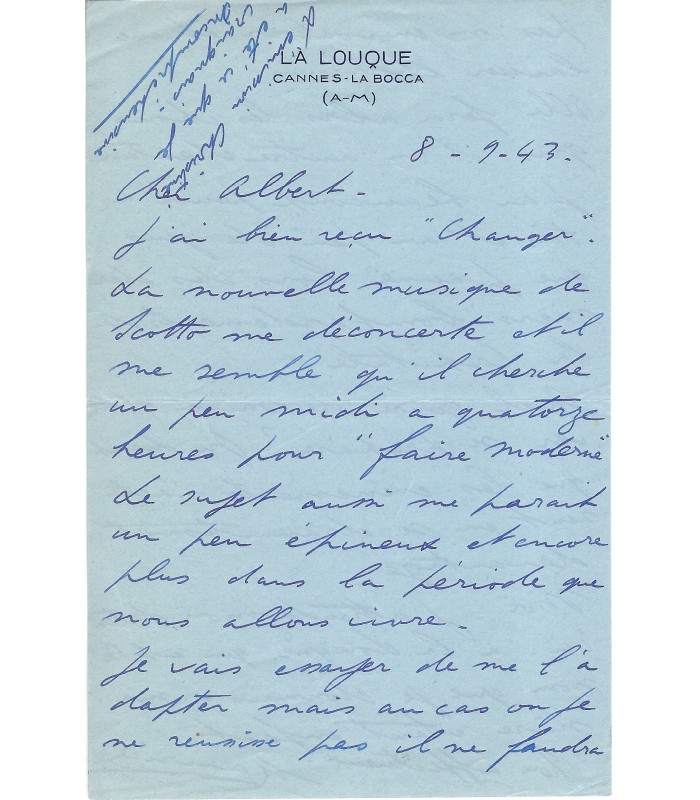 LÀ LOUQUE
CANNES-LA BOCCA
(A-M)
a été ce que je
craignais -
8 - 9-43.
Cher Albert -
J'ai bien reçu "Changer".
La nouvelle musique de
Scotto me déconcerte et il
me semble qu'il cherche
un peu midi a quatorze
heures pour "faire moderne"
Le sujet aussi me parait
un peu épineux et encore
plus dans la période que
nous allons vivre -
Je vais essayer de me l'a
dapter mais au cas ou je
ne réussisse pas il ne faudra